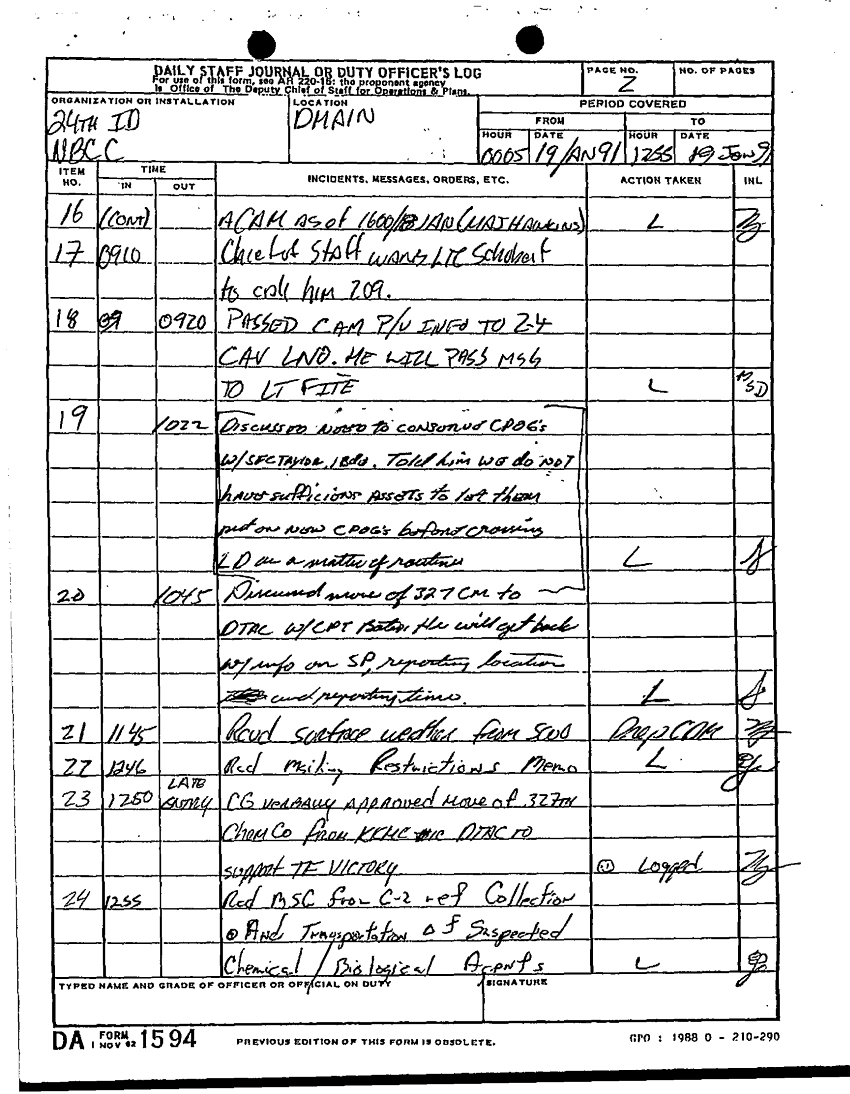 DAILY STAFF JOURNAL OR DUTY OFFICER'S LOG
For use of this form, see AR 220-15: the proponent agency
is Office of The Deputy Chief of Staff for Operations & Plans.
PAGE NO.
2
NO. OF PAGES
ORGANIZATION OR INSTALLATION
24TH ID
NBCC
LOCATION
DMAIN
PERIOD COVERED
FROM
TO
HOUR DATE HOUR DATE
0005 19 JAN 91 1255 19 Jan 91
ITEM NO.
TIME
IN OUT
INCIDENTS, MESSAGES, ORDERS, ETC.
ACTION TAKEN
INL
16 (CONT) ACAM AS of 1600/18 JAN (MAJ HAWKINS) L
17 0910 Chief of Staff wants LTC Schobert
to call him 209.
18 09 0920 PASSED CAM P/U INFO TO 2-4
CAV LNO. HE WILL PASS MSG
TO LT FITE L MSD
19 1022 Discussed need to conserve CPOG's
w/SFC TAYLOR, 1Bde. Told him we do NOT
have sufficient ASSETS to let them
put on new CPOG's before crossing
LD as a matter of routine L
20 1045 Discussed move of 327 CM to
DTAC w/CPT Bates. He will get back
w/ info on SP, reporting location
and reporting times. L
21 1145 Rcvd surface weather from SWO
22 1246 Rcd Mailing Restrictions Memo L
23 1250 LATE ENTRY CG verbally approved move of 327TH
Chem Co from KKMC DTAC to
support TF VICTORY Logged
24 1255 Rcd MSG from C-2 ref Collection
And Transportation Of Suspected
Chemical / Biological Agents L
TYPED NAME AND GRADE OF OFFICER OR OFFICIAL ON DUTY
SIGNATURE
DA FORM 1 NOV 62 1594
PREVIOUS EDITION OF THIS FORM IS OBSOLETE.
GPO : 1988 O - 210-290